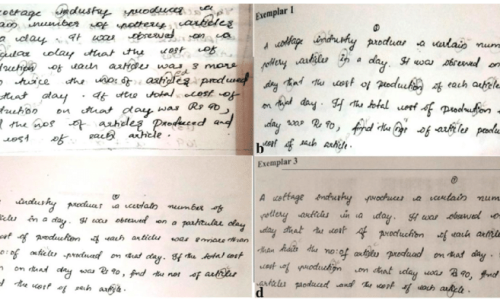 cottage industry produces a
number of pottery articles
a day. It was observed on a
day that the cost of
of each articles was 3 more
twice the no: of articles produced
that day. If the total cost of
on that day was Rs 90,
the nos of articles produced and
cost of each article.
Exemplar 1
①
A cottage industry produces a certain num
pottery articles in a day. It was observed on
day that the cost of production of each articles
on that day. If the total cost of production
day was Rs 90, find the nos of articles produc
cost of each article.
b
①
industry produces a certain number of
in a day. It was observed on a particular day
cost of production of each articles was 3 more than
no: of articles produced on that day. If the total cost
on that day was Rs 90, find the nos of articles
the cost of each article.
Exemplar 3
①
A cottage industry produces a certain num
pottery articles in a day. It was observed on
day that the cost of production of each article
than twice the no: of articles produced on that day.
cost of production on that day was Rs 90, find
articles produced and the cost of each article.
d